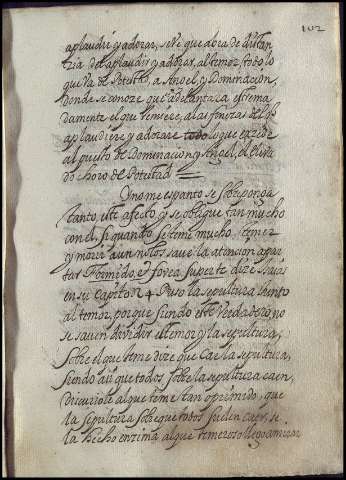 102
aplaudir, y adorar, se ve que dora de distan
zia del aplaudir y adorar, al temor, todo lo
que va de Potestad, a Angel, y Dominacion,
Donde se conoze que adelantara estrema
damente el que temiere, a las finezas del q̃
aplaudiere, y adorare todo lo que excede
al puesto de Dominacion, y Angel, el
choro de Potestad
Y no me espanto se sobreponga
tanto, este afecto, y se oblique tan mucho
con el si quando se teme mucho, temer
y morir aun no los save la atencion apar
tar Formido, et fovea super te dize
en su Capitº 24 Puso la sepultura junto
al temor, porque siendo este verdadero no
se saven dividir el temor y la sepultura,
sobre el que teme dize que cae la sepultura,
siendo asi que todos sobre la sepultura caen,
discurriole al que teme tan oprimido, que
la sepultura sobre que todos suelen caer, se
la hecho enzima al que temeroso llego a mirar